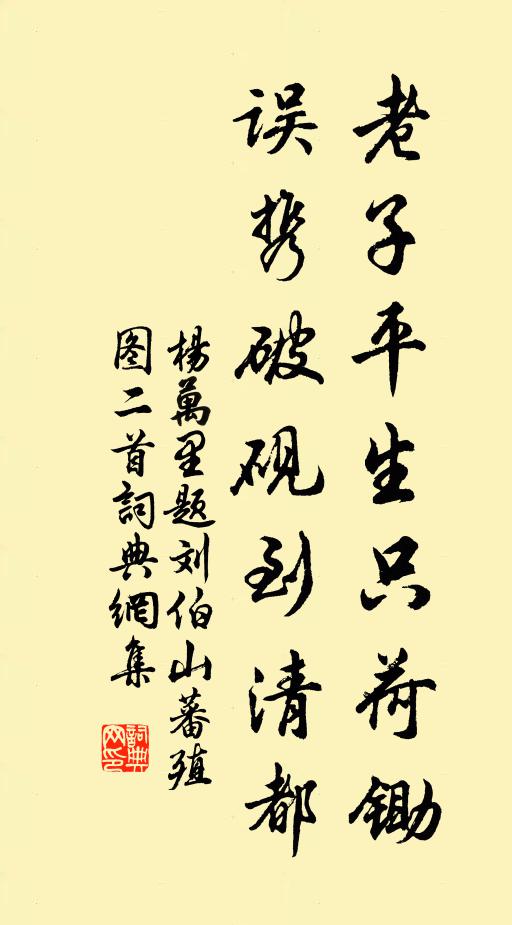 老子平生只荷锄
误携破砚到清都
楊萬里题刘伯山蕃殖
图二首詞典網集
詞典网印